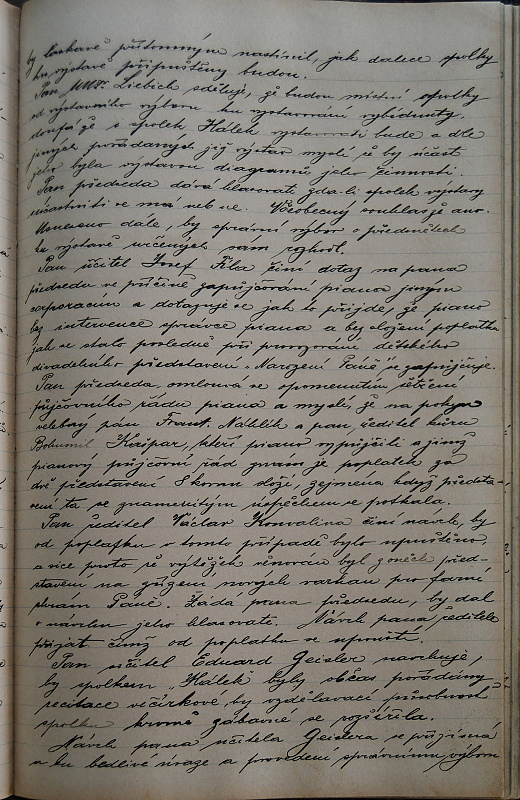 by laskavě přítomným nastínil, jak dalece spolky
ku výstavě připuštěny budou.
Pan MUDr. Liebich sděluje, že budou místní spolky
od výstavního výboru ku vystavování vybídnuty,
doufá že i spolek Hálek vystavovati bude a dle
jiných pořádaných již výstav myslí že by účast
jeho byla výstavou diagramů jeho činnosti.
Pan předseda dává hlasovati zda-li spolek výstavy
súčastniti se má neb ne. Všeobecný souhlas je ano.
Usneseno dále, by správní výbor o předmětech
ku výstavě určených sám rozhodl.
Pan učitel Josef Fila činí dotaz na pana
předsedu ve příčině zapůjčování piana jiným
corporacím a dotazuje se jak to přijde, že piano
bez intervence správce piana a bez složení poplatku
jak se stalo posledně při provozování dětského
divadelního představení „Narození Páně" se zapůjčuje.
Pan předseda omlouvá se opomenutím šetření
půjčovního řádu piana a myslí, že na pokyn
velebný pán Frant. Náhlík a pan ředitel kůru
Bohumil Kašpar, kteří piano vypůjčili a jimž
pianový půjčovní řád znám je poplatek za
dvě představení 8 korun složí, zejména když předsta-
vení ta se znamenitým úspěchem se potkala.
Pan ředitel Václav Konvalina činí návrh, by
od poplatku v tomto případě bylo upuštěno,
a více proto, že výtěžek věnován byl z oněch před-
stavení na zřízení nových varhan pro farní
chrám Páně. Žádá pana předsedu, by dal
o návrhu jeho hlasovati. Návrh pana ředitele
přijat čímž od poplatku se upouští.
Pan učitel Eduard Geisler navrhuje,
by spolkem „Hálek" byly občas pořádány
recitace večírkové, by vzdělávací působnost
spolku kromě zábavné se rozšířila.
Návrh pana učitele Geislera se přijímá
a ku bedlivé úvaze a provedení správnímu výboru